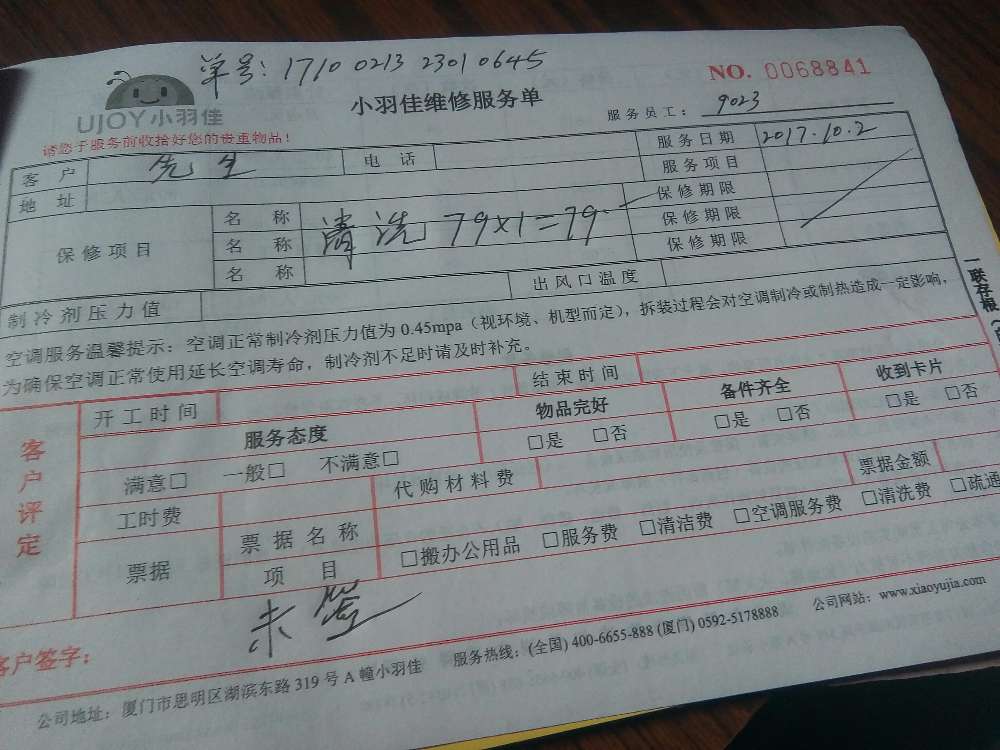 单号: 1710 0213 2301 0645
NO. 0068841
UJOY小羽佳
小羽佳维修服务单
服务员工: 9023
请您于服务前收拾好您的贵重物品!
客户 先生 电话 服务日期 2017.10.2
地址 服务项目
保修项目 名称 清洗 79×1=79 保修期限
名称 保修期限
名称 保修期限
制冷剂压力值 出风口温度
空调服务温馨提示: 空调正常制冷剂压力值为 0.45mpa (视环境、机型而定), 拆装过程会对空调制冷或制热造成一定影响,
为确保空调正常使用延长空调寿命, 制冷剂不足时请及时补充。
一联存根
客户评定
开工时间 结束时间
服务态度 物品完好 备件齐全 收到卡片
满意□ 一般□ 不满意□ □是 □否 □是 □否 □是 □否
工时费 代购材料费 票据金额
票据 票据名称 □搬办公用品 □服务费 □清洁费 □空调服务费 □清洗费 □疏通
项目
客户签字: 未签
公司地址: 厦门市思明区湖滨东路 319 号 A 幢小羽佳 服务热线: (全国) 400-6655-888 (厦门) 0592-5178888 公司网站: www.xiaoyujia.com